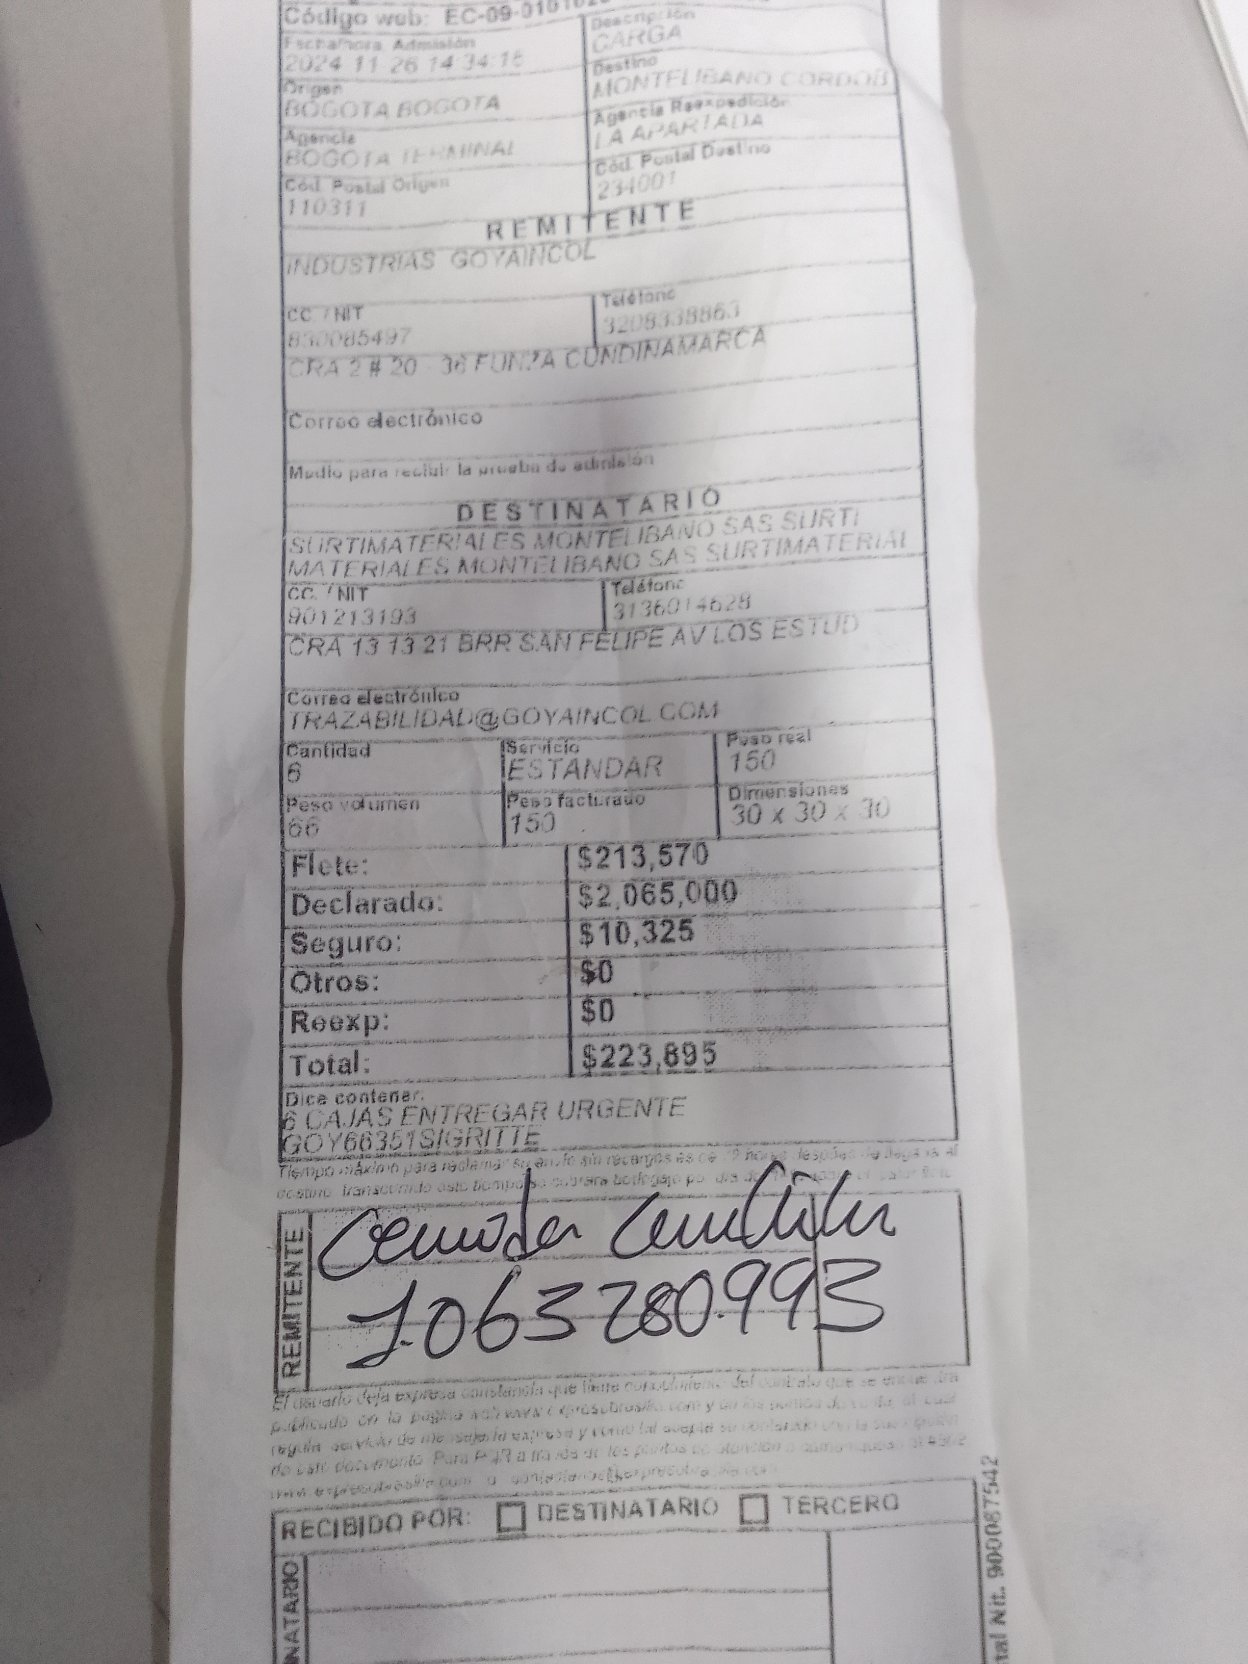 Código web: EC-09-0101
Fecha/hora Admisión
2024 11 26 14:34:15
Descripción
CARGA
Origen
BOGOTA BOGOTA
Destino
MONTELIBANO CORDOB
Agencia
BOGOTA TERMINAL
Agencia Reexpedición
LA APARTADA
Cód. Postal Origen
110311
Cód. Postal Destino
234001
REMITENTE
INDUSTRIAS GOYAINCOL
CC. / NIT
830085497
Teléfono
3208338863
CRA 2 # 20 - 36 FUNZA CUNDINAMARCA
Correo electrónico
Medio para recibir la prueba de admisión
DESTINATARIO
SURTIMATERIALES MONTELIBANO SAS SURTI
MATERIALES MONTELIBANO SAS SURTIMATERIAL
CC. / NIT
901213193
Teléfono
3136014628
CRA 13 13 21 BRR SAN FELIPE AV LOS ESTUD
Correo electrónico
TRAZABILIDAD@GOYAINCOL.COM
Cantidad
6
Servicio
ESTANDAR
Peso real
150
Peso volumen
66
Peso facturado
150
Dimensiones
30 x 30 x 30
Flete: $213,570
Declarado: $2,065,000
Seguro: $10,325
Otros: $0
Reexp: $0
Total: $223,895
Dice contener:
6 CAJAS ENTREGAR URGENTE
GOY66351SIGRITTE
Tiempo máximo para reclamar su envío sin recargos es de horas después de llegada al
destino, transcurrido este tiempo se cobrará bodegaje por día
REMITENTE
1.063280.993
El usuario deja expresa constancia que tiene conocimiento del contrato que se encuentra
publicado en la página web www.expresobrasilia.com y en los puntos de venta, el cual
regula servicio de mensajería expresa y como tal acepta su contenido con la suscripción
de este documento. Para PQR a través de los puntos de atención
RECIBIDO POR: DESTINATARIO TERCERO
NATARIO
tal Nit. 900087542